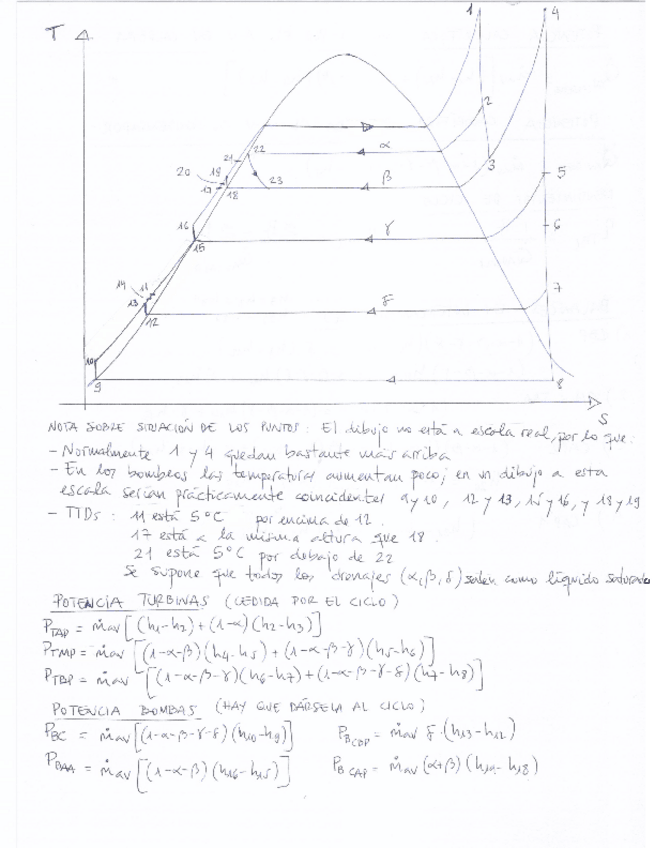 T
1
4
2
α
3
21
22
20
19
β
17
18
23
5
16
γ
6
15
14
11
13
δ
7
12
10
9
8
S
NOTA SOBRE SITUACIÓN DE LOS PUNTOS: El dibujo no está a escala real, por lo que:
- Normalmente 1 y 4 quedan bastante más arriba
- En los bombeos las temperaturas aumentan poco; en un dibujo a esta
escala serían prácticamente coincidentes 9 y 10, 12 y 13, 15 y 16, y 18 y 19
- TTDs: 11 está 5°C por encima de 12.
17 está a la misma altura que 18.
21 está 5°C por debajo de 22
Se supone que todos los drenajes (α, β, δ) salen como líquido saturado
POTENCIA TURBINAS (CEDIDA POR EL CICLO)
PTAP = ṁav [(h1-h2) + (1-α)(h2-h3)]
PTMP = ṁav [(1-α-β)(h4-h5) + (1-α-β-γ)(h5-h6)]
PTBP = ṁav [(1-α-β-γ)(h6-h7) + (1-α-β-γ-δ)(h7-h8)]
POTENCIA BOMBAS (HAY QUE DÁRSELA AL CICLO)
PBC = ṁav [(1-α-β-γ-δ)(h10-h9)] PBCBP = ṁav δ·(h13-h12)
PBAA = ṁav [(1-α-β)(h16-h15)] PBCAP = ṁav (α+β)(h19-h18)